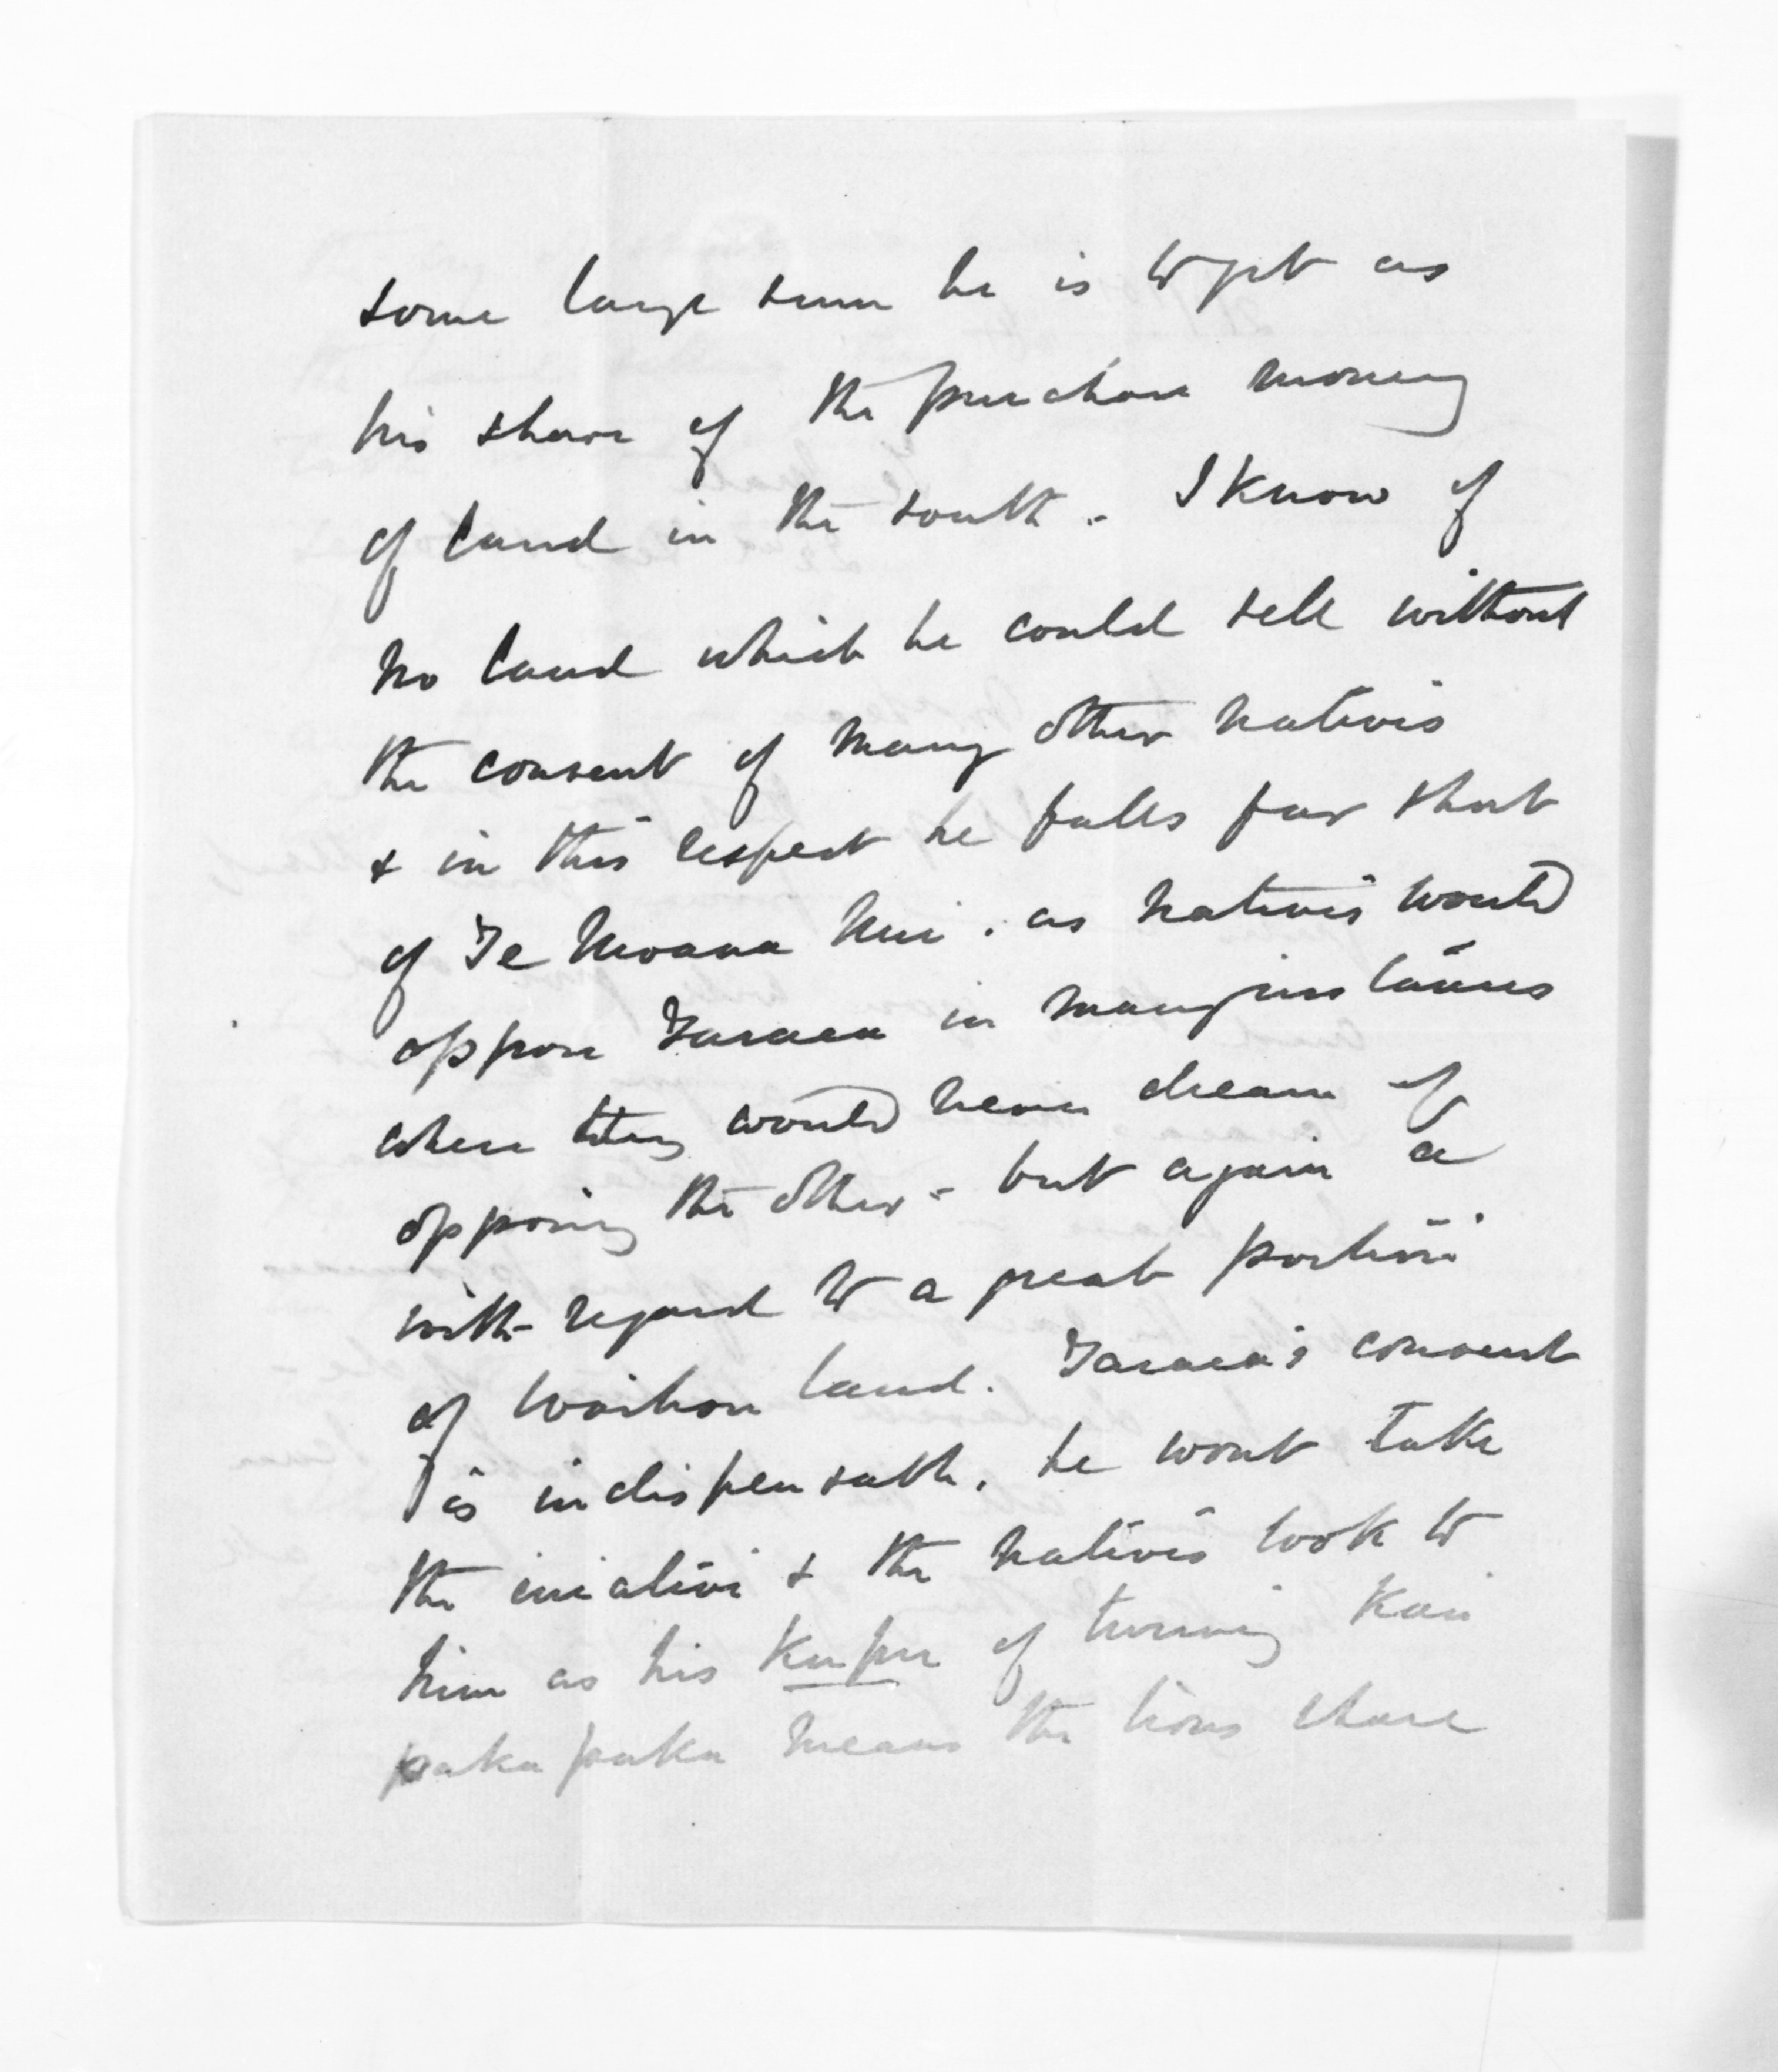 some large sum he is to get as
his share of the purchase money
of land in the south - I know of
no land which he could sell without
the consent of many other natives
& in this respect he falls far short
of Te Moana Nui. as natives would
oppose Tareha in many instances
where they would never dream of
opposing the other - but again a
with regard to a great portion
of Waihou land. Tareha's consent
is indispensable. he wont take
the iniative & the natives look to
him as his of turning Kai
paka paka means the lions share